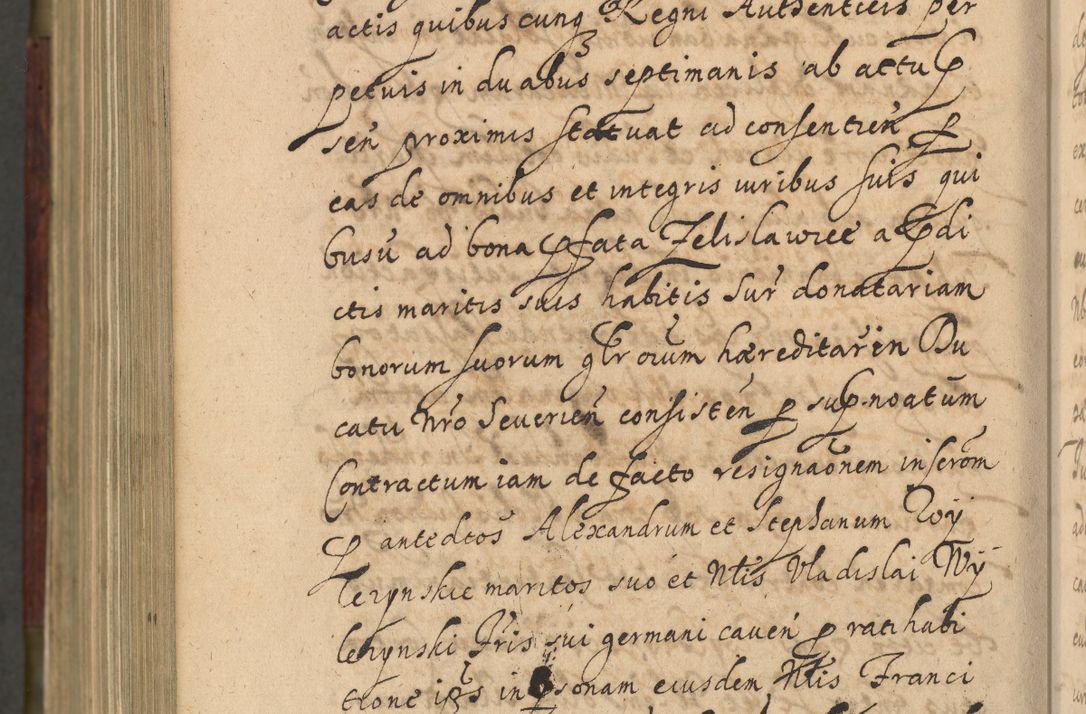 actis quibuscunq Regni Authenticis per
petuis in duabus septimanis ab actu p
sen proximis statuat ad consentien p
eas de omnibus et integris iuribus suis qui
busu ad bona pfata Zelislawice a pdi
ctis maritis suis habitis sur donatariam
bonorum suorum glr oium hæreditar in Du
catu nro Severien consisten p supnoatum
Contractum iam de facto resignaonem in serom
p antedtos Alexandrum et Stephanum Woÿ
leżynskie maritos suo et Nlis Vladislai Wÿ
leżynski Fris sui germani caven p ratihabi
tione in psonam eiusdem Nlis Franci